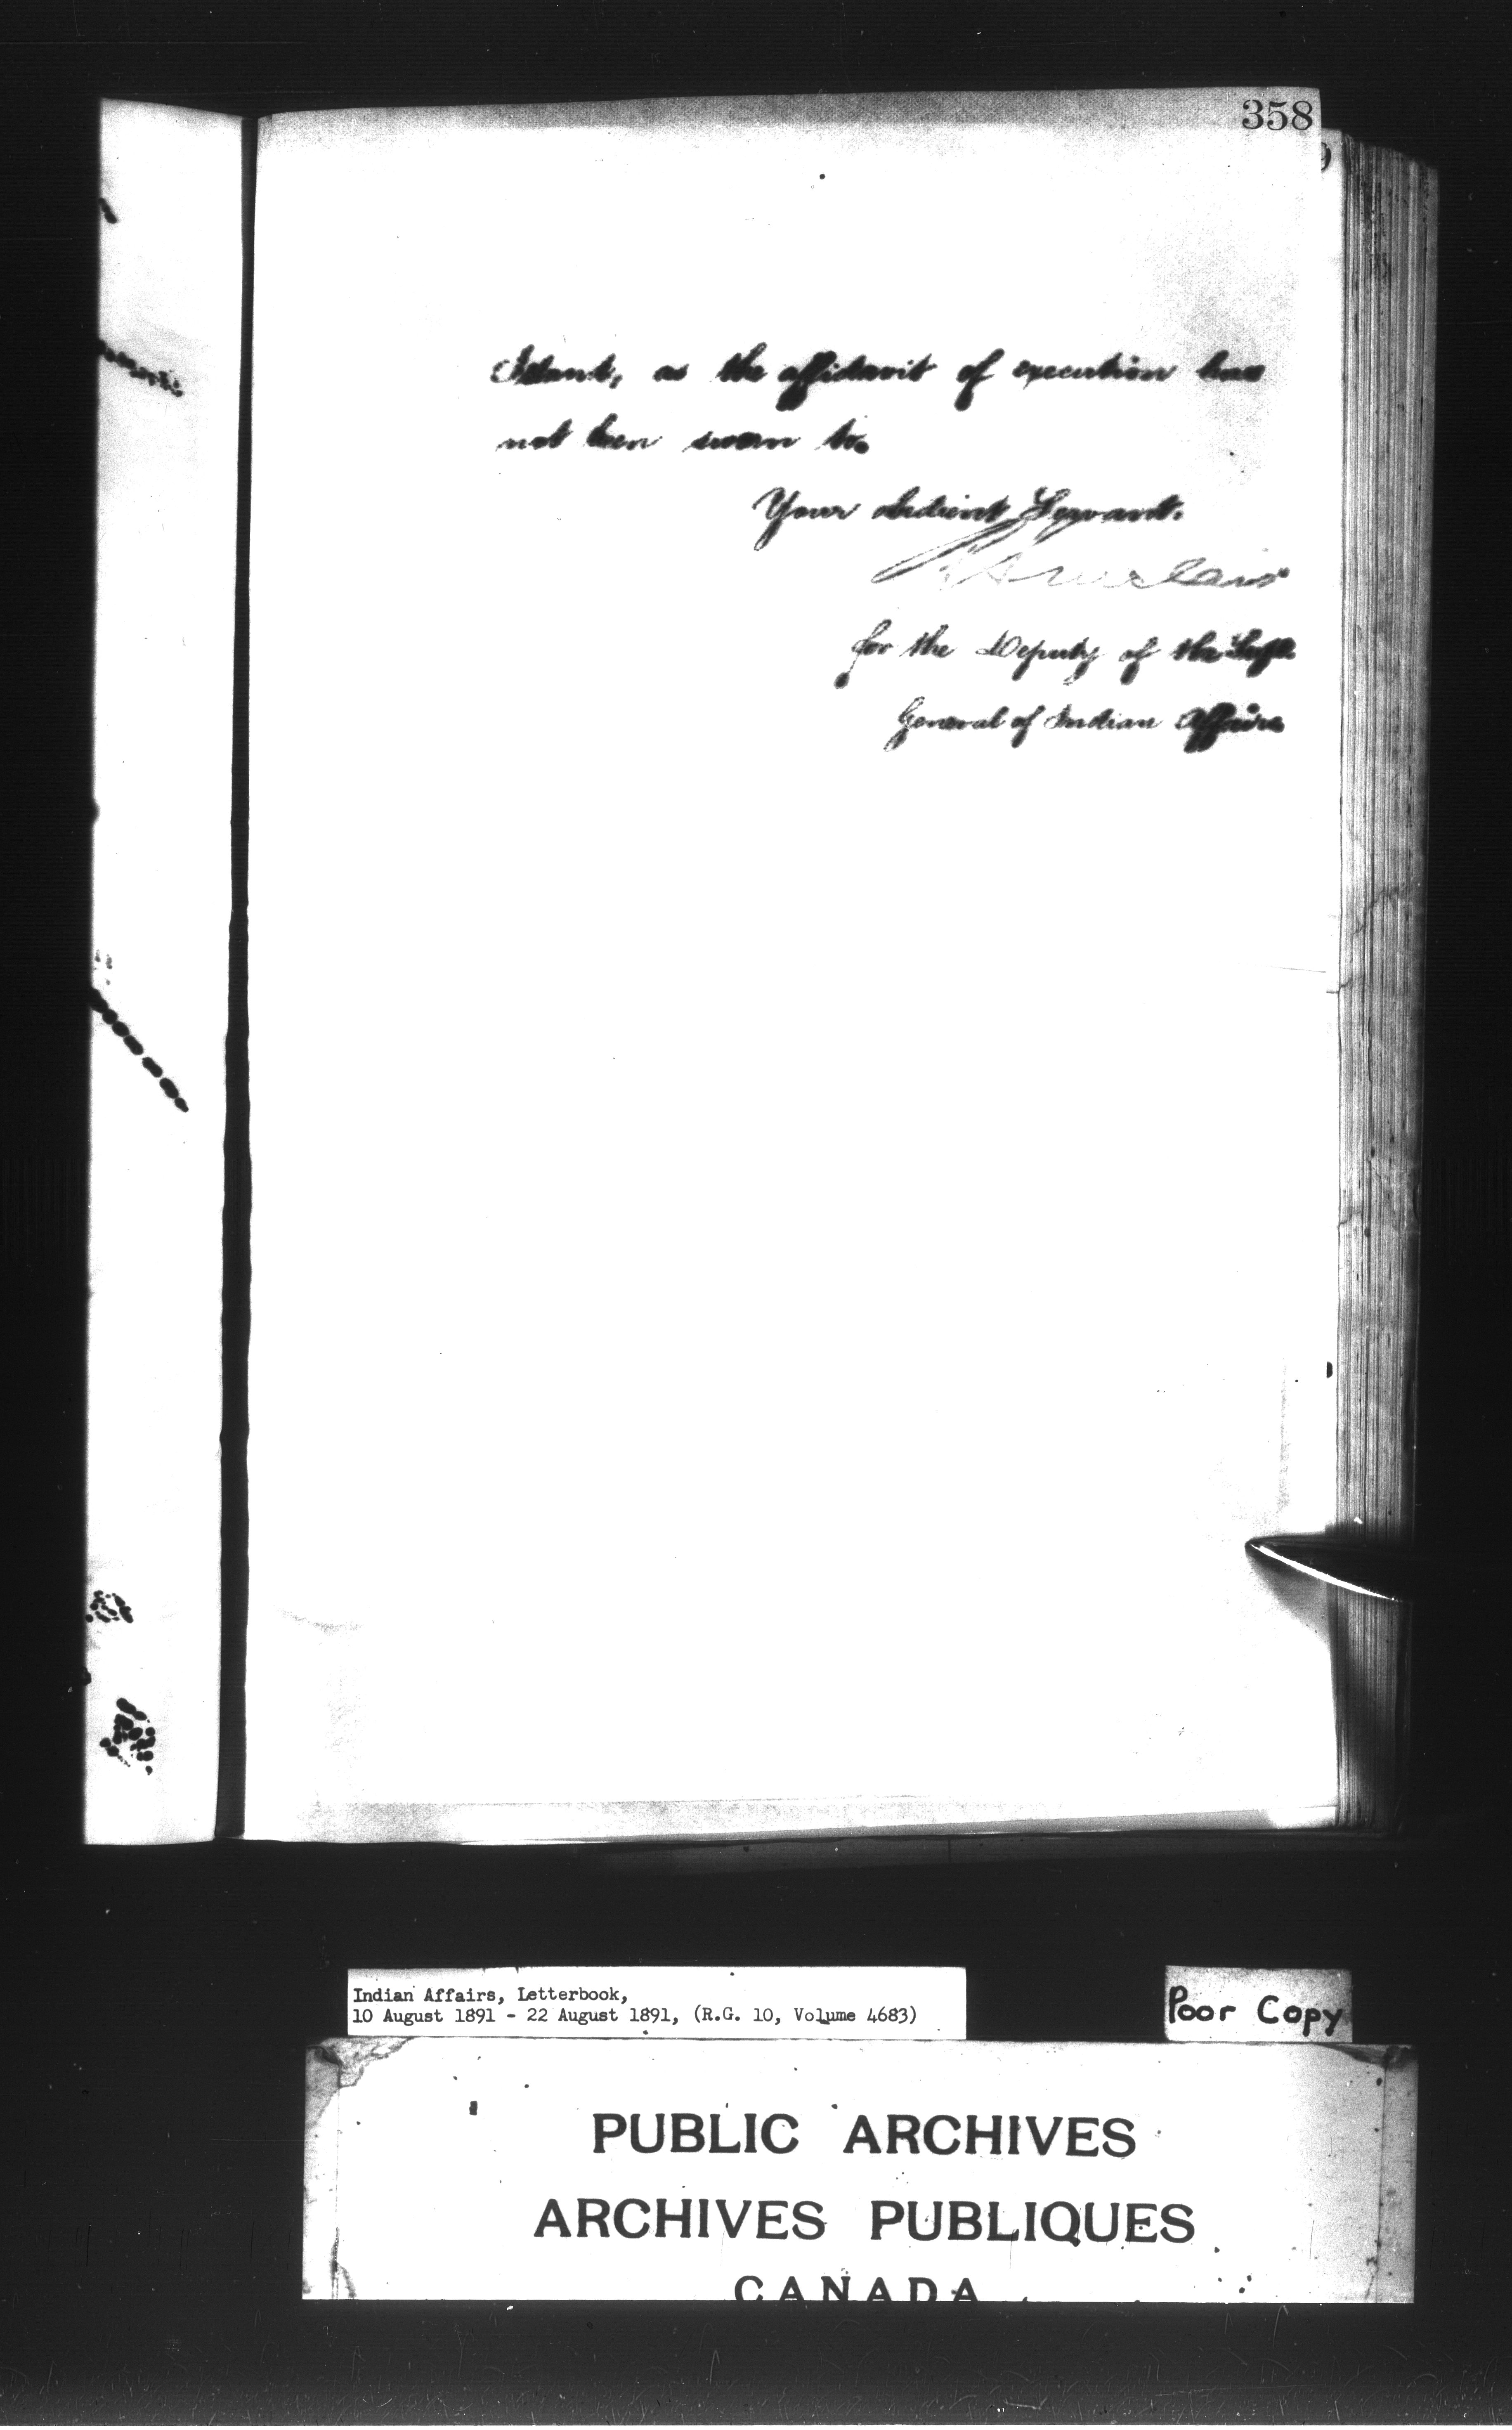 358
Island, as the affidavit of execution has
not been sworn to.
Your obedient Servant.
for the Deputy of the Supt.
General of Indian Affairs
Indian Affairs, Letterbook,
10 August 1891 - 22 August 1891, (R.G. 10, Volume 4683)
Poor Copy
PUBLIC ARCHIVES
ARCHIVES PUBLIQUES
CANADA